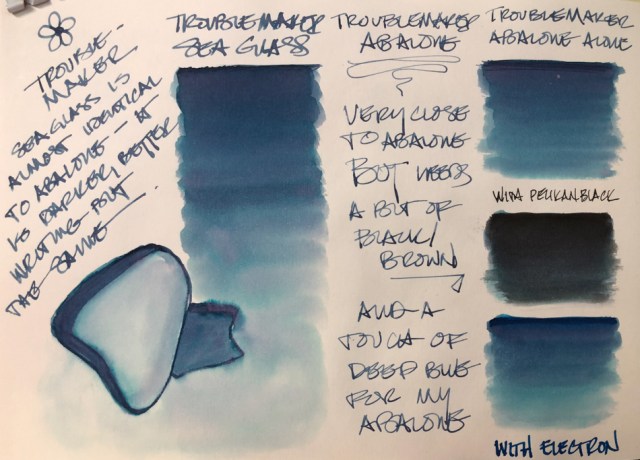 TROUBLE-
MAKER
SEA GLASS IS
ALMOST IDENTICAL
TO ABALONE - IT
IS DARKER, BETTER
WRITING BUT
THE SAME
TROUBLEMAKER
SEA GLASS
TROUBLEMAKER
ABALONE
VERY CLOSE
TO ABALONE
BUT NEEDS
A BIT OF
BLACK/
BROWN
AND A
TOUCH OF
DEEP BLUE
FOR MY
ABALONE
TROUBLEMAKER
ABALONE ALONE
WITH PELIKAN BLACK
WITH ELECTRON